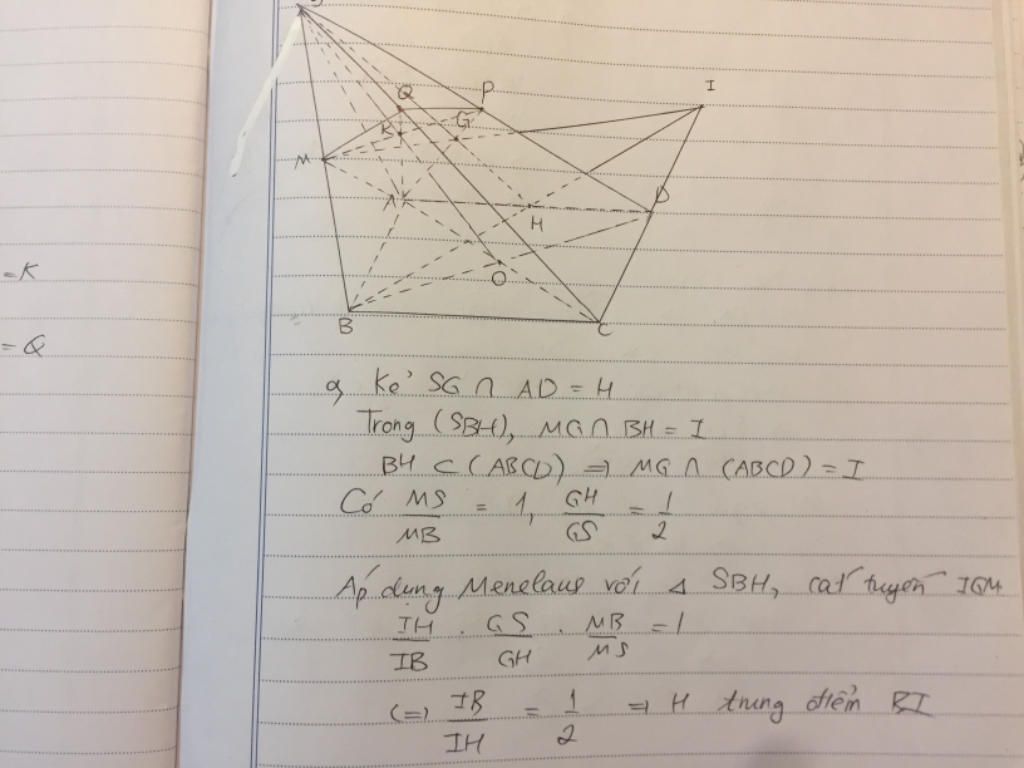 S
Q
P
I
K
G
M
A
D
H
O
B
C
= K
= Q
a, Kẻ SG ∩ AD = H
Trong (SBH), MG ∩ BH = I
BH ⊂ (ABCD) ⇒ MG ∩ (ABCD) = I
Có MS/MB = 1, GH/GS = 1/2
Áp dụng Menelaus với △ SBH, cát tuyến IGM
IH/IB . GS/GH . MB/MS = 1
(=) IB/IH = 1/2 ⇒ H trung điểm BI